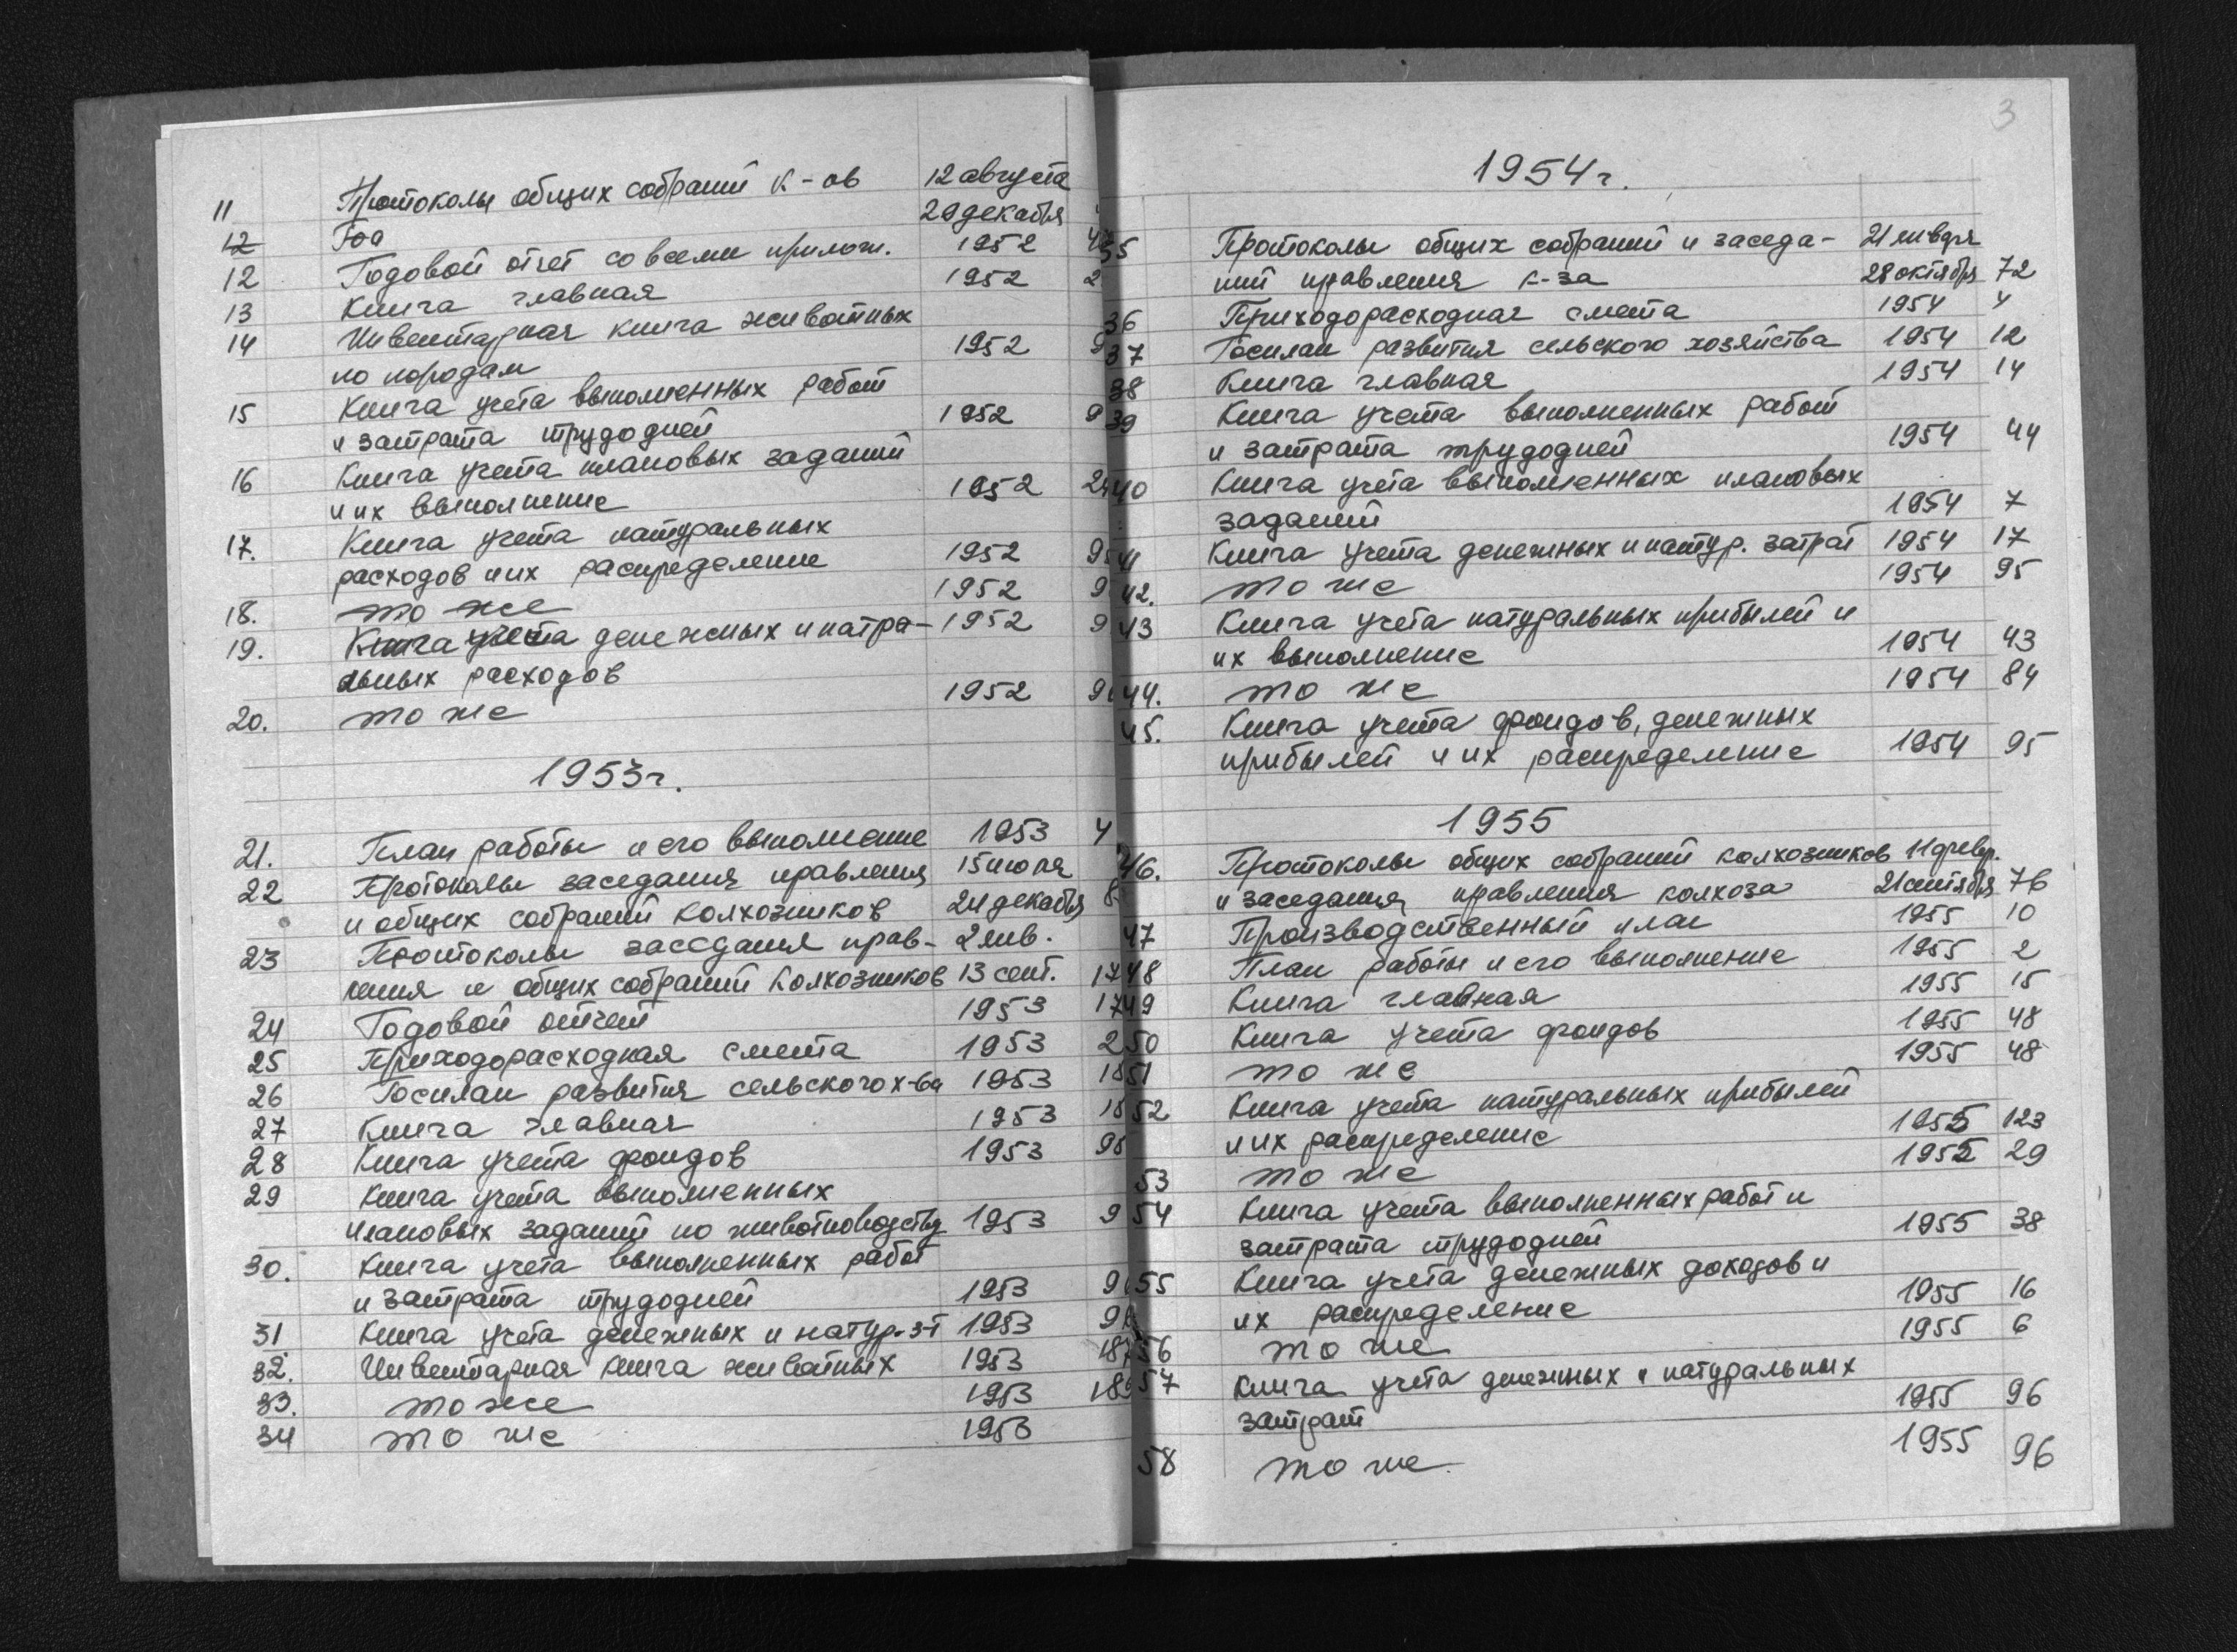 11 Протоколы общих собраний к-ов 12 августа
29 декабря
12 Гоа
12 Годовой отчет со всеми прилож. 1952
13 Книга главная 1952
14 Инвентарная книга животных
по породам 1952
15 Книга учета выполненных работ
и затрата трудодней 1952
16 Книга учета плановых заданий
и их выполнение 1952
17. Книга учета натуральных
расходов и их распределение 1952
18. то же 1952
19. Книга учета денежных и натра- 1952
льных расходов
20. то же 1952
1953г.
21. План работы и его выполнение 1953 4
22 Протоколы заседания правления 15 июля
и общих собраний колхозников 24 декабря
23 Протоколы заседания прав- 2 янв.
ления и общих собраний колхозников 13 сент.
24 Годовой отчет 1953
25 Приходорасходная смета 1953
26 Госплан развития сельского х-ва 1953
27 Книга главная 1953
28 Книга учета фондов 1953
29 Книга учета выполненных
плановых заданий по животноводству 1953
30. Книга учета выполненных работ
и затрата трудодней 1953
31 Книга учета денежных и натур. з-т 1953
32. Инвентарная книга животных 1953
33. то же 1953
34 то же 1953
3
1954г.
35 Протоколы общих собраний и заседа- 21 января
ний правления к-за 28 октября 72
36 Приходорасходная смета 1954 4
37 Госплан развития сельского хозяйства 1954 12
38 Книга главная 1954 14
39 Книга учета выполненных работ
и затрата трудодней 1954 44
40 Книга учета выполненных плановых
заданий 1954 7
41 Книга учета денежных и натур. затрат 1954 17
42. то же 1954 95
43 Книга учета натуральных прибылей и
их выполнение 1954 43
44. то же 1954 84
45. Книга учета фондов, денежных
прибылей и их распределение 1954 95
1955
46. Протоколы общих собраний колхозников 11 февр.
и заседания правления колхоза 21 сентября 76
47 Производственный план 1955 10
48 План работы и его выполнение 1955 2
49 Книга главная 1955 15
50 Книга учета фондов 1955 48
51 то же 1955 48
52 Книга учета натуральных прибылей
и их распределение 1955 123
53 то же 1955 29
54 Книга учета выполненных работ и
затрата трудодней 1955 38
55 Книга учета денежных доходов и
их распределение 1955 16
56 то же 1955 6
57 Книга учета денежных и натуральных
затрат 1955 96
58 то же 1955 96